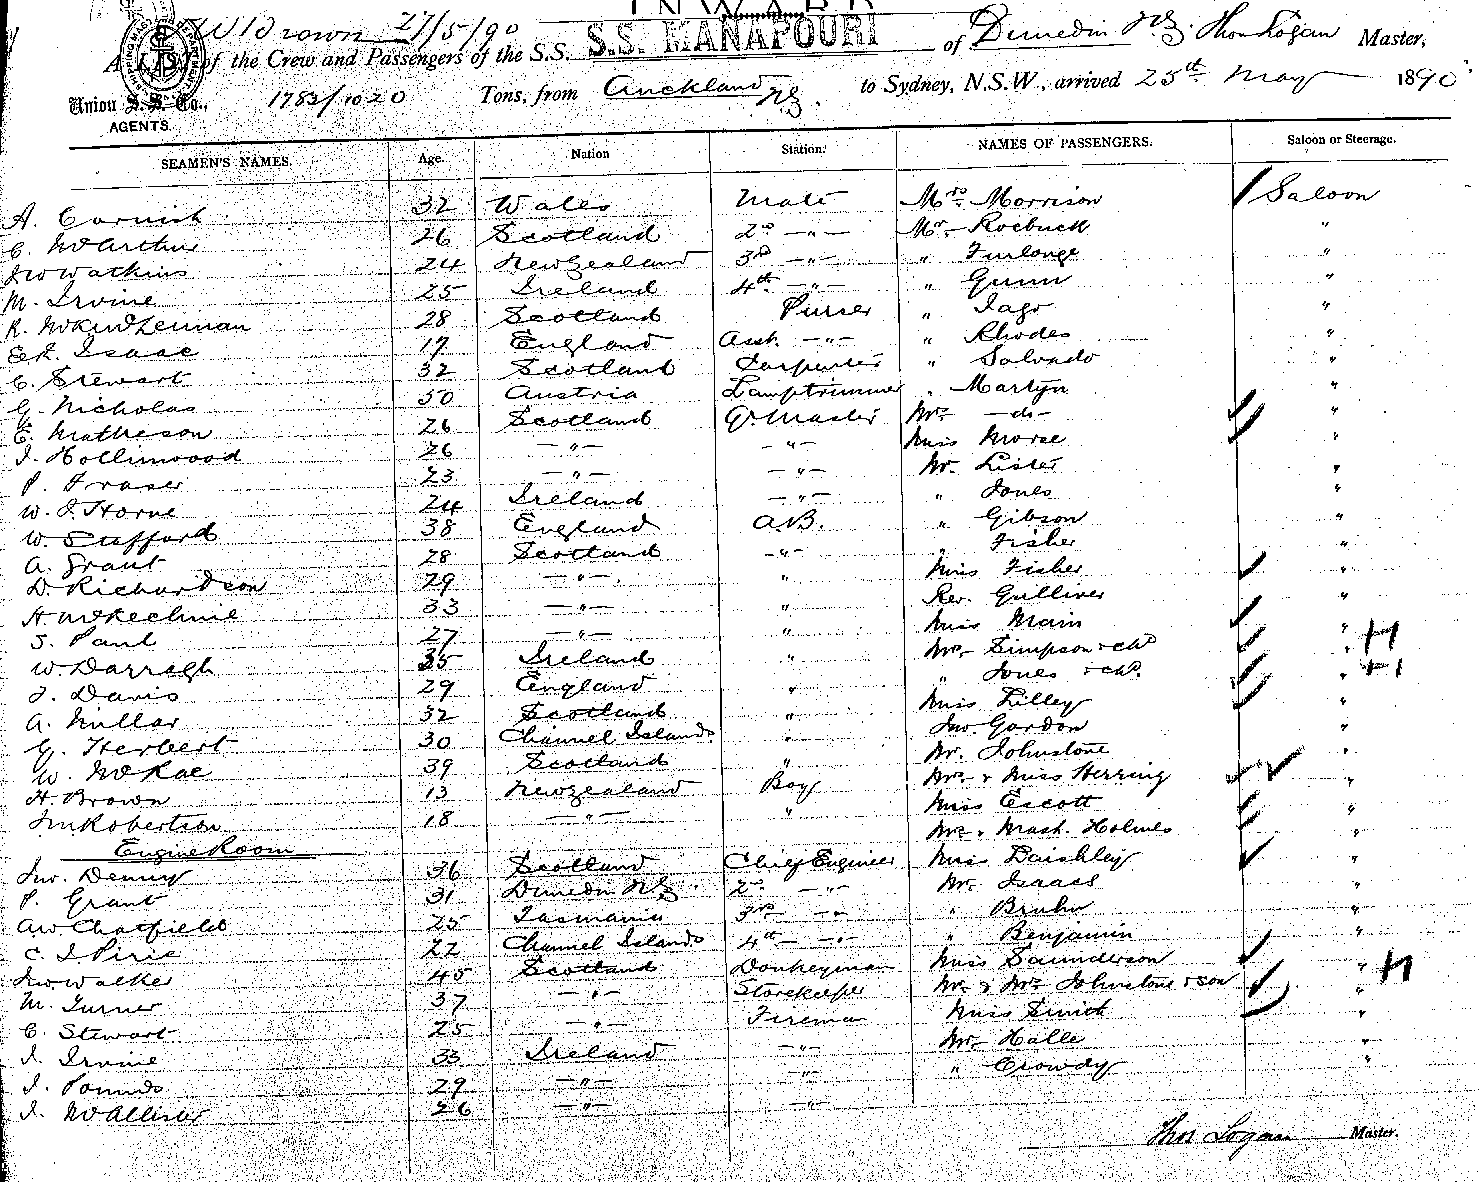 INWARD
W Brown 27/5/90
A LIST of the Crew and Passengers of the S.S. S.S. MANAPOURI of Dunedin NZ. Thos Logan Master,
Union S.S. Co., 1783/1020 Tons, from Auckland NZ. to Sydney, N.S.W., arrived 25th May 1890
AGENTS.
SEAMEN'S NAMES. Age. Nation Station. NAMES OF PASSENGERS. Saloon or Steerage.
A. Cornish 32 Wales Mate Mrs Morrison Saloon
C. McArthur 26 Scotland 2nd -"- Mr. Roebuck "
Jno Watkins 24 New Zealand 3rd -"- " Furlonge "
M. Irvine 25 Ireland 4th -"- " Gunn "
R. McK McLennan 28 Scotland Purser " Iago "
E.R. Isaac 17 England Asst. -"- " Rhodes "
C. Stewart 32 Scotland Carpenter " Salvado "
G. Nicholas 50 Austria Lamptrimmer " Martyn "
E. Matheson 26 Scotland Qr. Master Mrs -do- "
J. Hollinwood 26 -"- -"- Miss Morse "
P. Fraser 23 -"- -"- Mr. Lister "
W. J. Horne 24 Ireland -"- " Jones "
W. Stafford 38 England A.B. " Gibson "
A. Grant 28 Scotland -"- " Fisher "
D. Richardson 29 -"- " Miss Fisher "
H. McKechnie 33 -"- " Rev. Gulliver "
S. Paul 27 -"- " Miss Main "
W. Darragh 35 Ireland " Mrs Simpson & chd "
J. Davis 29 England " " Jones & chd. "
A. Millar 32 Scotland " Miss Lilley "
G. Herbert 30 Channel Islands " Jno. Gordon "
W. McRae 39 Scotland " Mr. Johnstone "
H. Brown 13 New Zealand Boy Mrs & Miss Herring "
Jn Robertson 18 -"- " Miss Escott "
Engine Room Mrs & Mast. Holmes
Jno. Denny 36 Scotland Chief Engineer Miss Baishley "
P. Grant 31 Dunedin NZ 2nd -"- Mr. Isaacs "
AW Chatfield 25 Tasmania 3rd -"- " Bruhn "
C. J. Pirie 22 Channel Islands 4th -"- " Benjamin "
Jno Walker 45 Scotland Donkeyman Miss Saunderson "
M. Turner 37 -"- Storekeeper Mr. & Mrs. Johnstone & son "
C. Stewart 25 -"- Fireman Miss Smith "
J. Irvine 33 Ireland -"- Mr. Halle "
J. Pounds 29 -"- -"- " Crowdy "
J. McAllister 26 -"- -"-
Thos Logan Master.